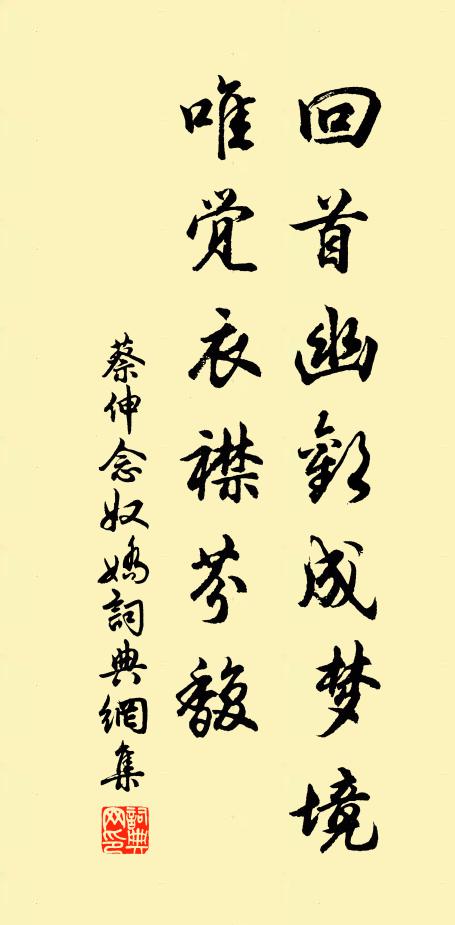 回首幽歡成梦境
唯觉衣襟芬馥
蔡伸念奴娇詞典網集
詞典
网印